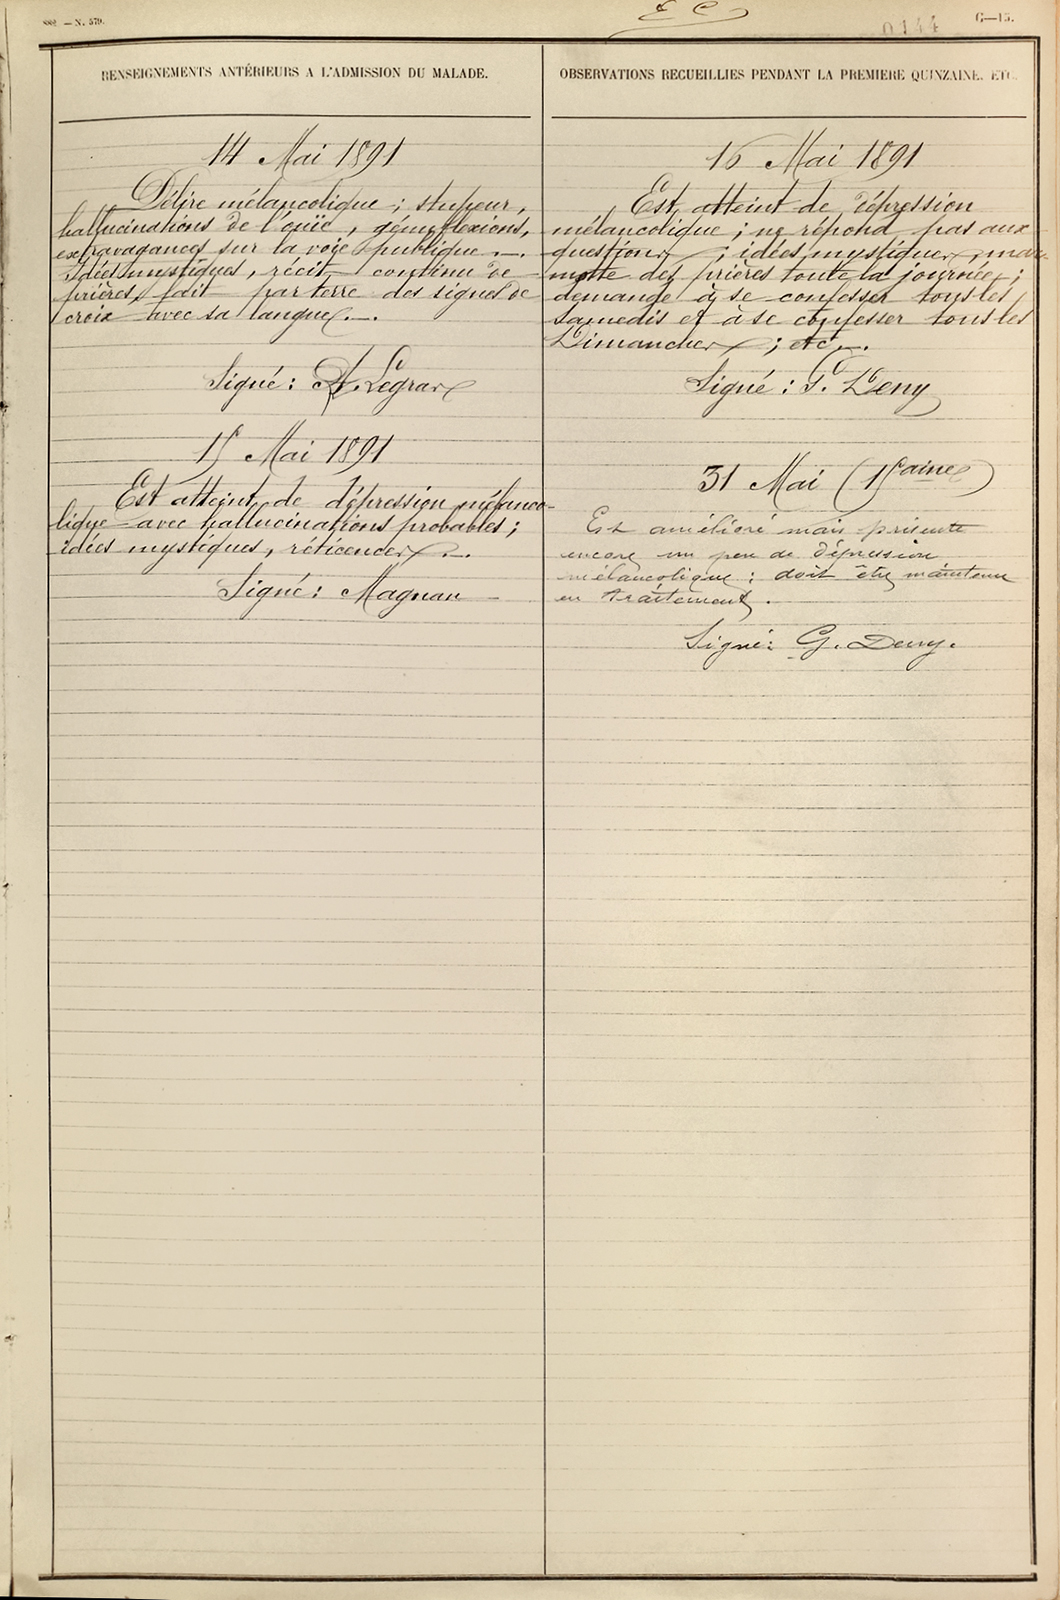 E C
0144
882. — N. 579.
G—15.
RENSEIGNEMENTS ANTÉRIEURS A L'ADMISSION DU MALADE.
14 Mai 1891
Délire mélancolique ; stupeur,
hallucinations de l'ouïe, génuflexions,
extravagances sur la voie publique.—.
Idées mystiques, récit continu de
prières, fait par terre des signes de
croix avec sa langue.—.
Signé : Legras
15 Mai 1891
Est atteint de dépression mélanco-
lique avec hallucinations probables ;
idées mystiques, réticences.—.
Signé : Magnan —
OBSERVATIONS RECUEILLIES PENDANT LA PREMIERE QUINZAINE, ETC.
16 Mai 1891
Est atteint de dépression
mélancolique ; ne répond pas aux
questions ; idées mystiques ; mar-
motte des prières toute la journée ;
demande à se confesser tous les
Samedis et à se confesser tous les
Dimanches ; etc.—.
Signé : G. Deny
31 Mai (15aine)
Est amélioré mais présente
encore un peu de dépression
mélancolique ; doit être maintenu
en traitement.
Signé : G. Deny.